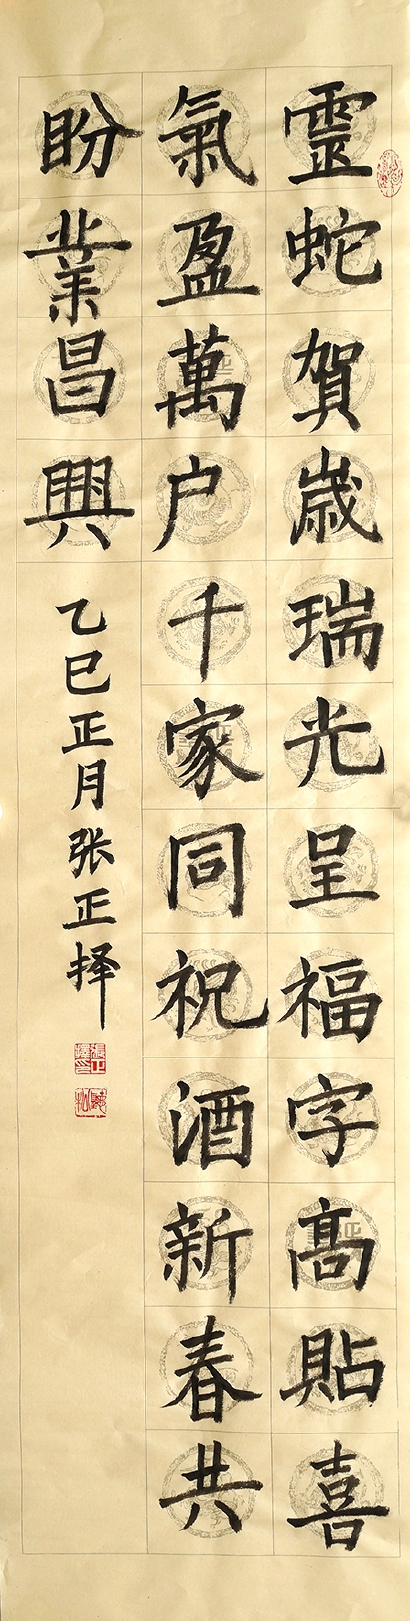 靈蛇賀歲瑞光呈福字高貼喜
氣盈萬户千家同祝酒新春共
盼業昌興
乙巳正月张正择